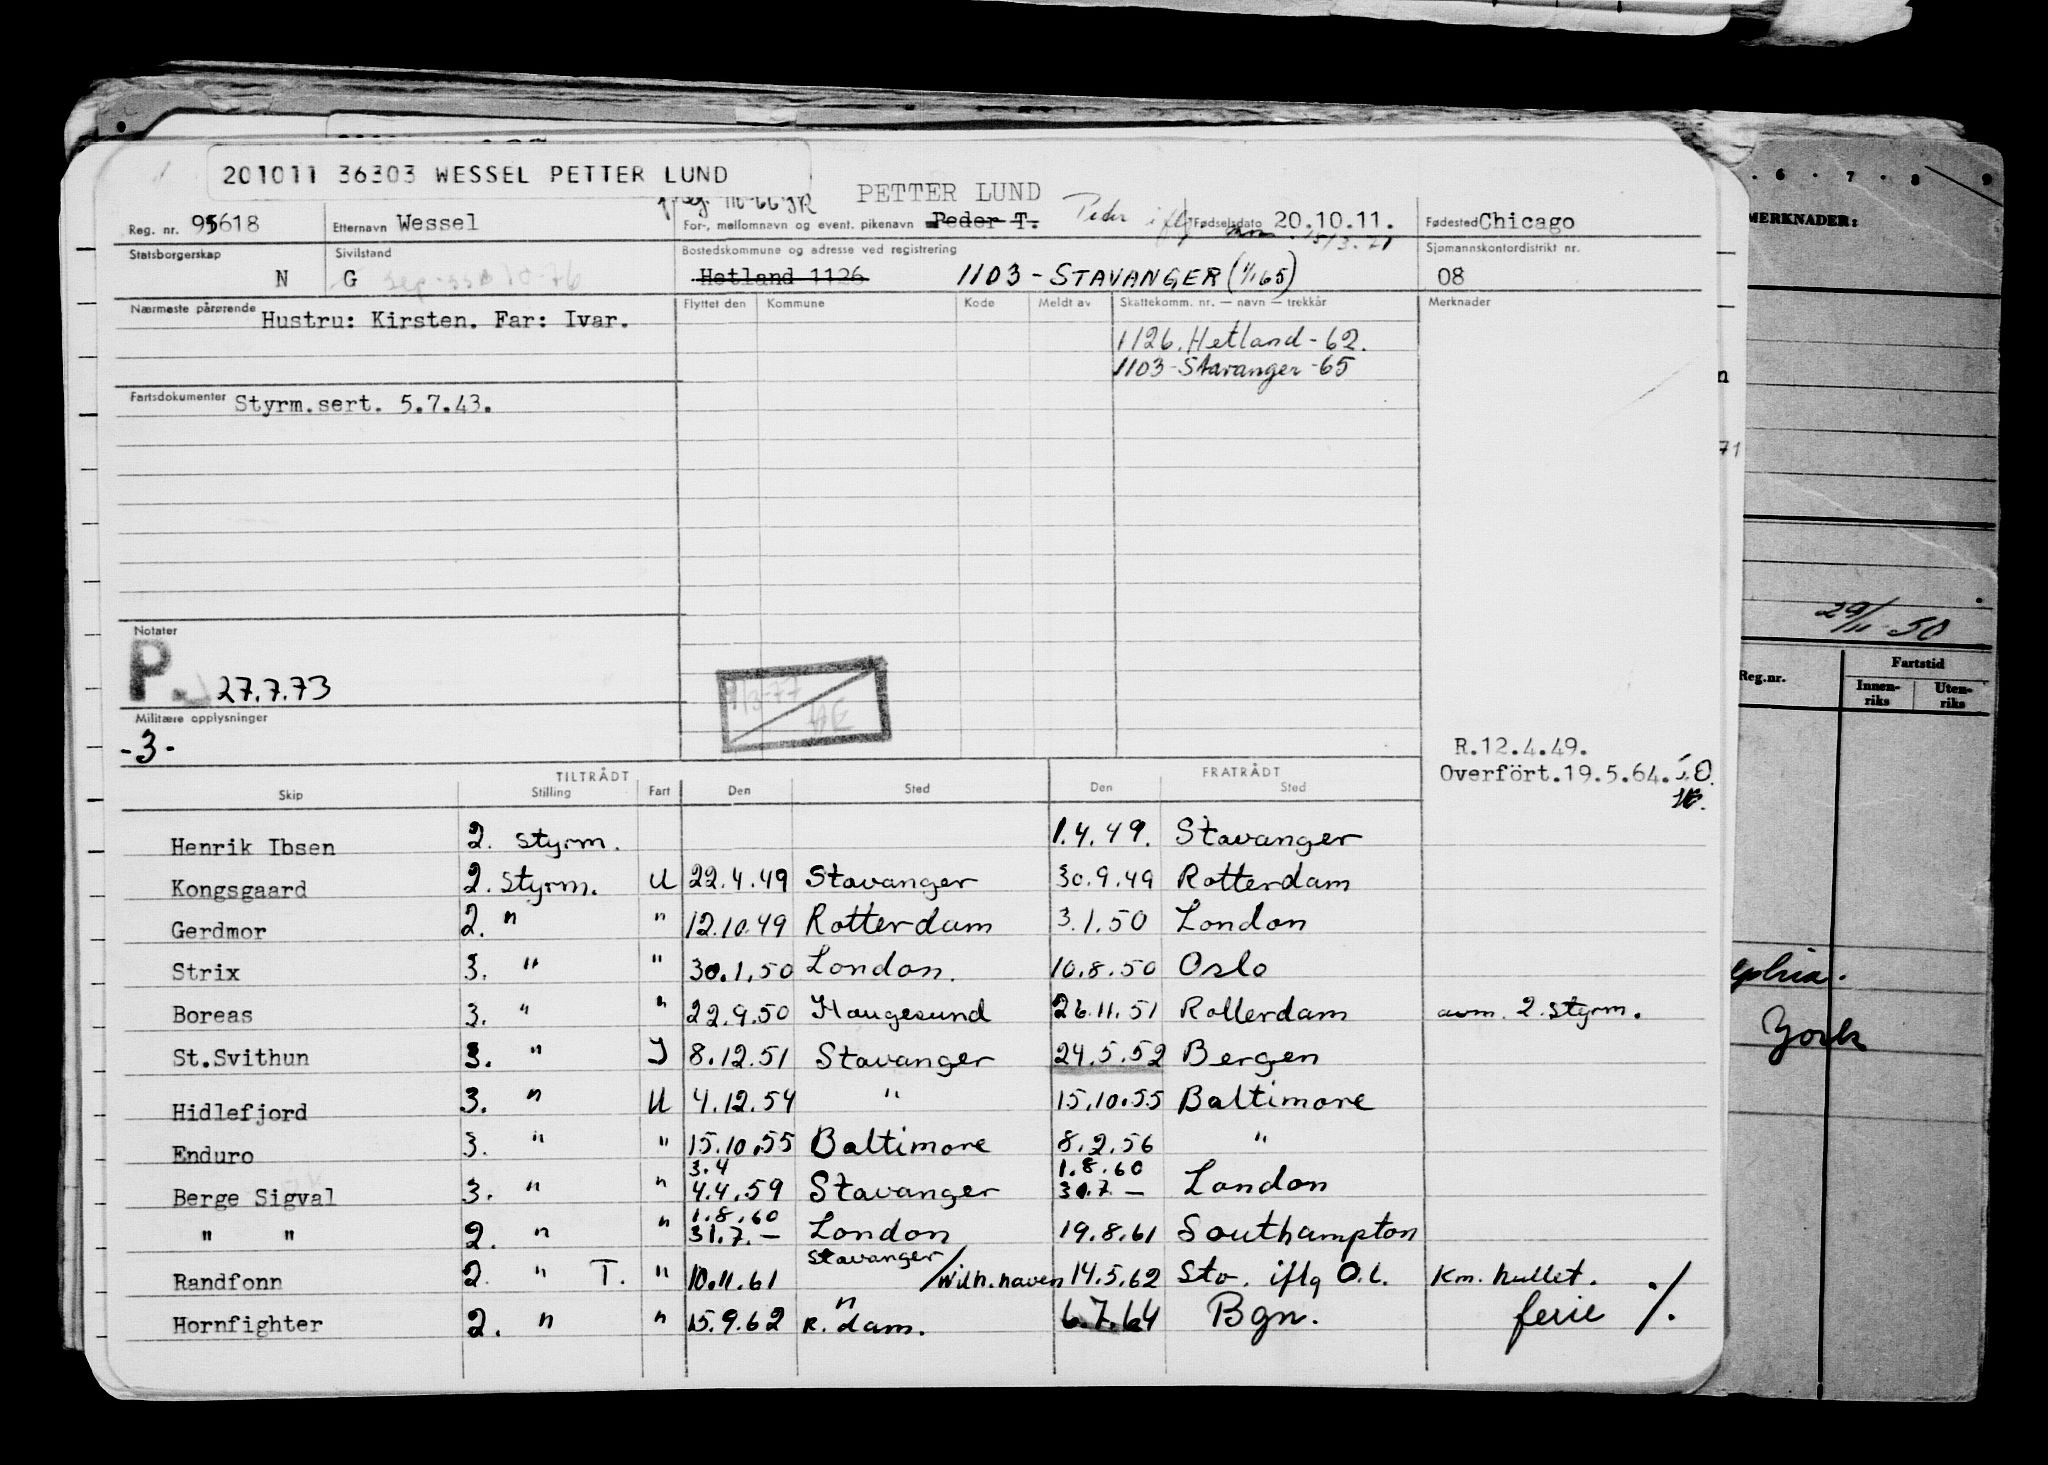 201011 36303 WESSEL PETTER LUND
PETTER LUND
Reg. nr. 95618 Etternavn Wessel For-, mellomnavn og event. pikenavn Peder T. Peder iflg. Fødselsdato 20.10.11. Fødested Chicago
15/3.71
Statsborgerskap N Sivilstand G Bostedskommune og adresse ved registrering Hetland 1126 1103 - STAVANGER (1/1 65) Sjømannskontordistrikt nr. 08
Nærmeste pårørende Hustru: Kirsten. Far: Ivar. Flyttet den Kommune Kode Meldt av Skattekomm. nr. — navn — trekkår Merknader
1126. Hetland - 62.
1103 - Stavanger - 65
Fartsdokumenter Styrm.sert. 5.7.43.
Notater
P. 27.7.73
Militære opplysninger
-3-
R.12.4.49.
Overfört.19.5.64.
TILTRÅDT FRATRÅDT
Skip Stilling Fart Den Sted Den Sted
Henrik Ibsen 2. styrm. 1.4.49. Stavanger
Kongsgaard 2. styrm. U 22.4.49 Stavanger 30.9.49 Rotterdam
Gerdmor 2. " " 12.10.49 Rotterdam 3.1.50 London
Strix 3. " " 30.1.50 London. 10.8.50 Oslo
Boreas 3. " " 22.9.50 Haugesund 26.11.51 Rotterdam avm. 2. styrm.
St.Svithun 3. " I 8.12.51 Stavanger 24.5.52 Bergen
Hidlefjord 3. " U 4.12.54 " 15.10.55 Baltimore
Enduro 3. " " 15.10.55 Baltimore 8.2.56 "
3.4 1.8.60
Berge Sigval 3. " " 4.4.59 Stavanger 30.7.— London
1.8.60
" " 2. " " 31.7.— London 19.8.61 Southampton
Randfonn 2. " T. " 10.11.61 Stavanger/Wilh.haven 14.5.62 Stv. iflg O.l. Km. hullet. ./.
Hornfighter 2. " " 15.9.62 R."dam. 6.7.64 Bgn. ferie
6 . 7 . 8 . 9
MERKNADER:
n
71
29/11-50
Reg.nr. Fartstid
Innen-
riks
Uten-
riks
York